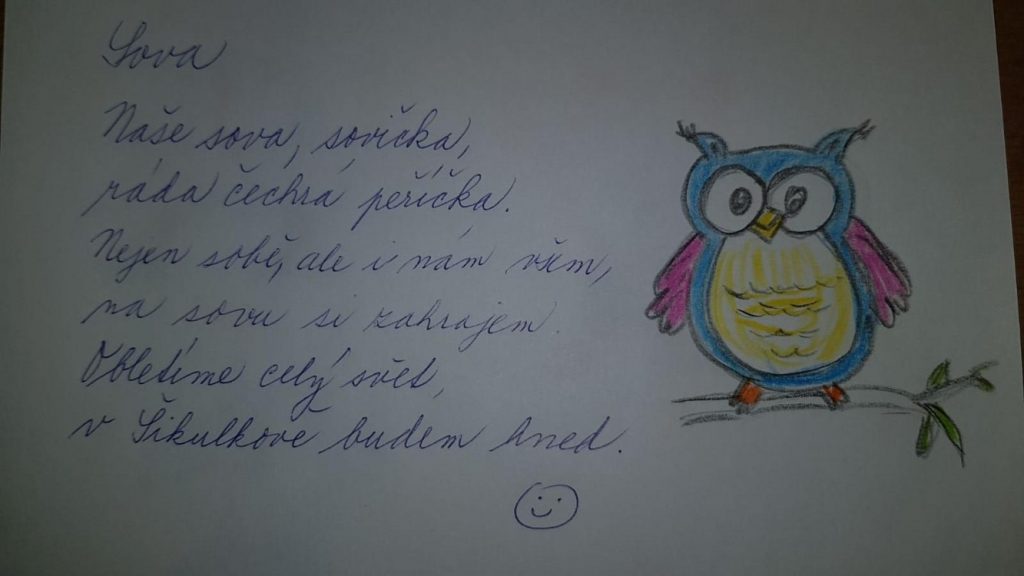 Sova
Naše sova, sovička,
ráda čechrá peříčka.
Nejen sobě, ale i nám všem,
na sovu si zahrajem.
Obletíme celý svět,
v Šikulkově budem hned.